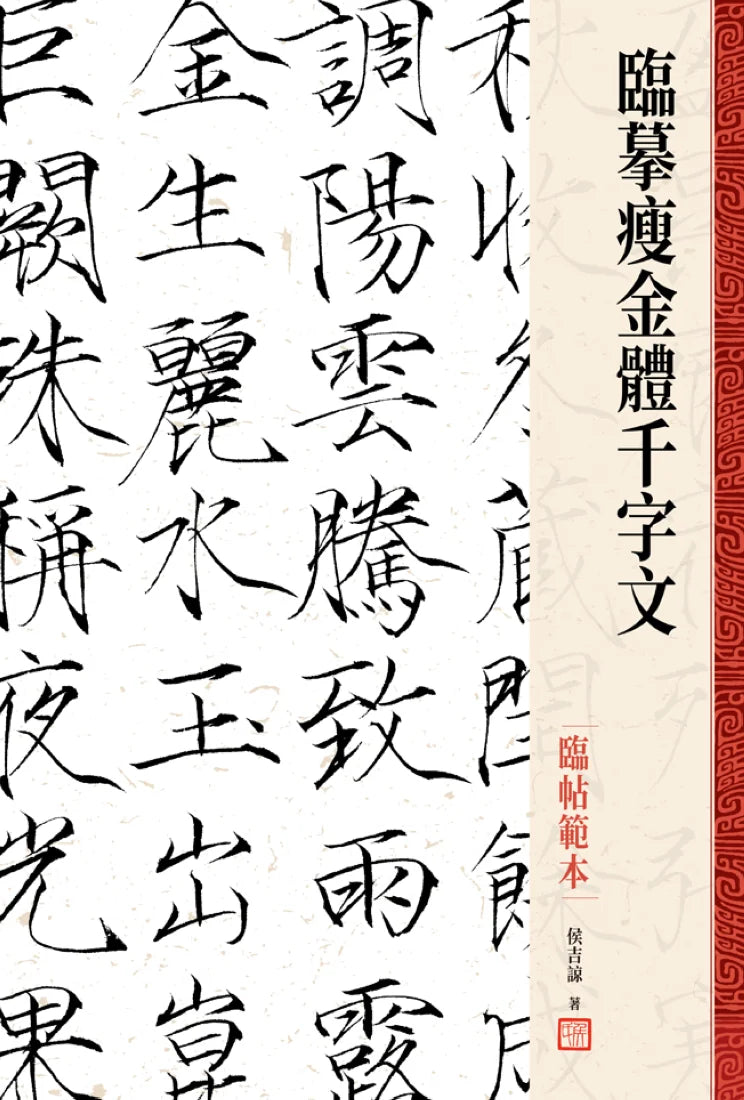 臨摹瘦金體千字文
臨帖範本
侯吉諒 著
秋收冬藏閏餘成
調陽雲騰致雨露
金生麗水玉出崑
巨闕珠稱夜光果